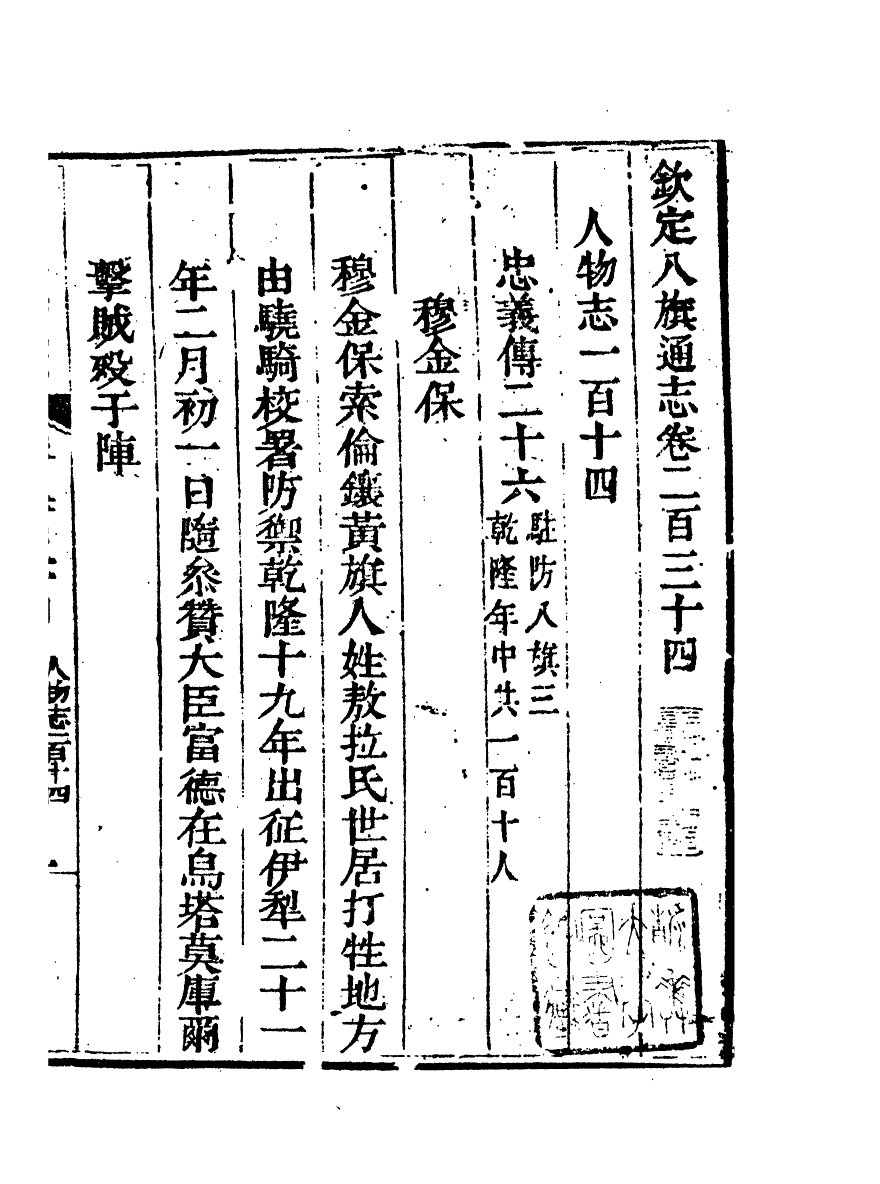 欽定八旗通志卷二百三十四
人物志一百十四
忠義傳二十六
駐防八旗三
乾隆年中共一百十人
穆金保
穆金保索倫鑲黃旗人姓敖拉氏世居打牲地方
由驍騎校署防禦乾隆十九年出征伊犁二十一
年二月初一日隨叅贊大臣富德在烏塔莫庫爾
擊賊歿于陣
人物志一百十四